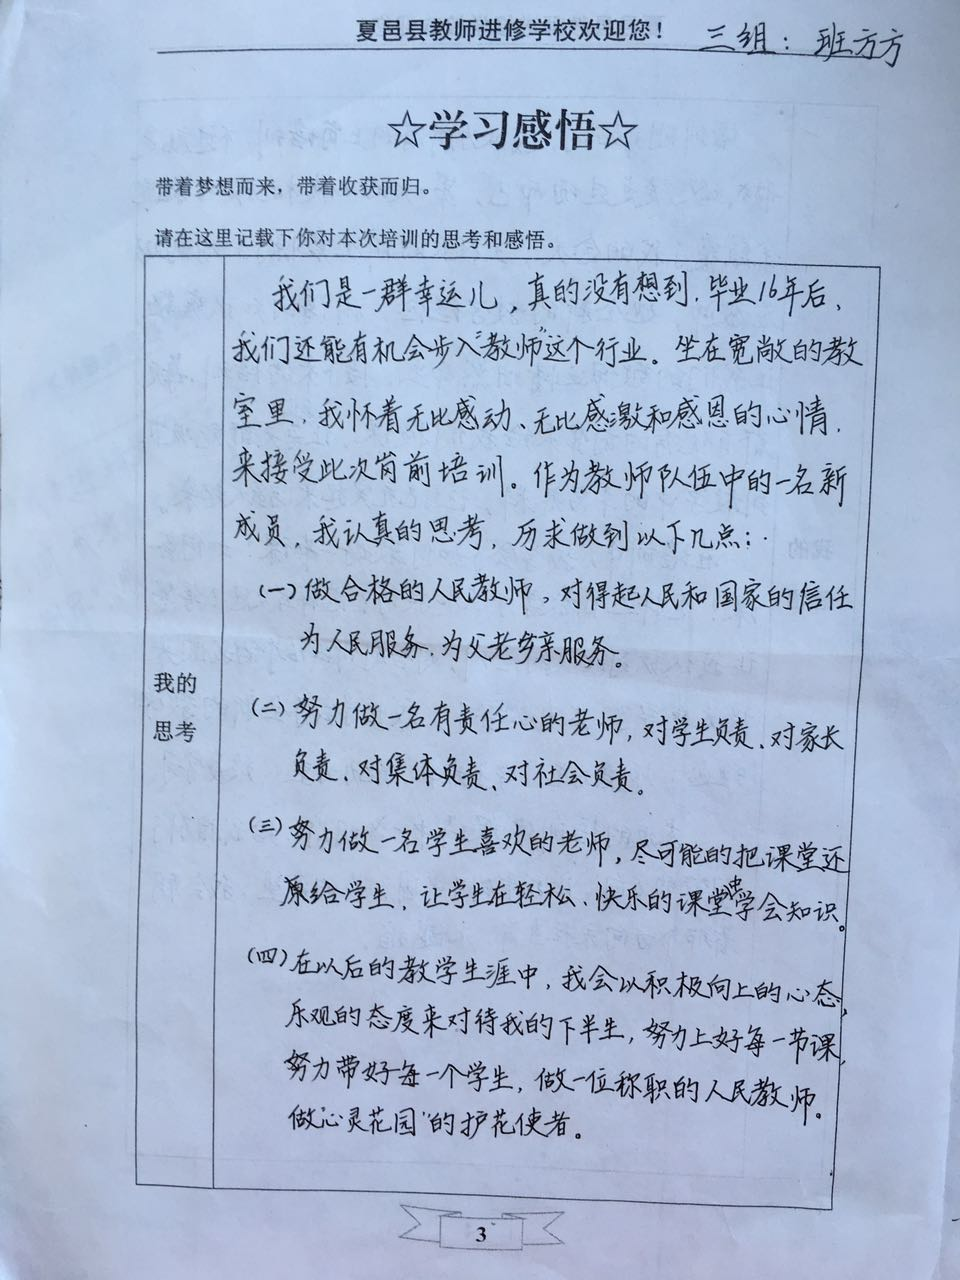 夏邑县教师进修学校欢迎您！
三组：班方方
☆学习感悟☆
带着梦想而来，带着收获而归。
请在这里记载下你对本次培训的思考和感悟。
我们是一群幸运儿，真的没有想到，毕业16年后，
我们还能有机会步入“教师”这个行业。坐在宽敞的教
室里，我怀着无比感动、无比感激和感恩的心情，
来接受此次岗前培训。作为教师队伍中的一名新
成员，我认真的思考，历求做到以下几点：
（一）做合格的人民教师，对得起人民和国家的信任
为人民服务，为父老乡亲服务。
我的
思考
（二）努力做一名有责任心的老师，对学生负责、对家长
负责、对集体负责、对社会负责。
（三）努力做一名学生喜欢的老师，尽可能的把课堂还
原给学生，让学生在轻松、快乐的课堂中学会知识。
（四）在以后的教学生涯中，我会以积极向上的心态，
乐观的态度来对待我的下半生，努力上好每一节课，
努力带好每一个学生，做一位称职的人民教师。
做“心灵花园”的护花使者。
3